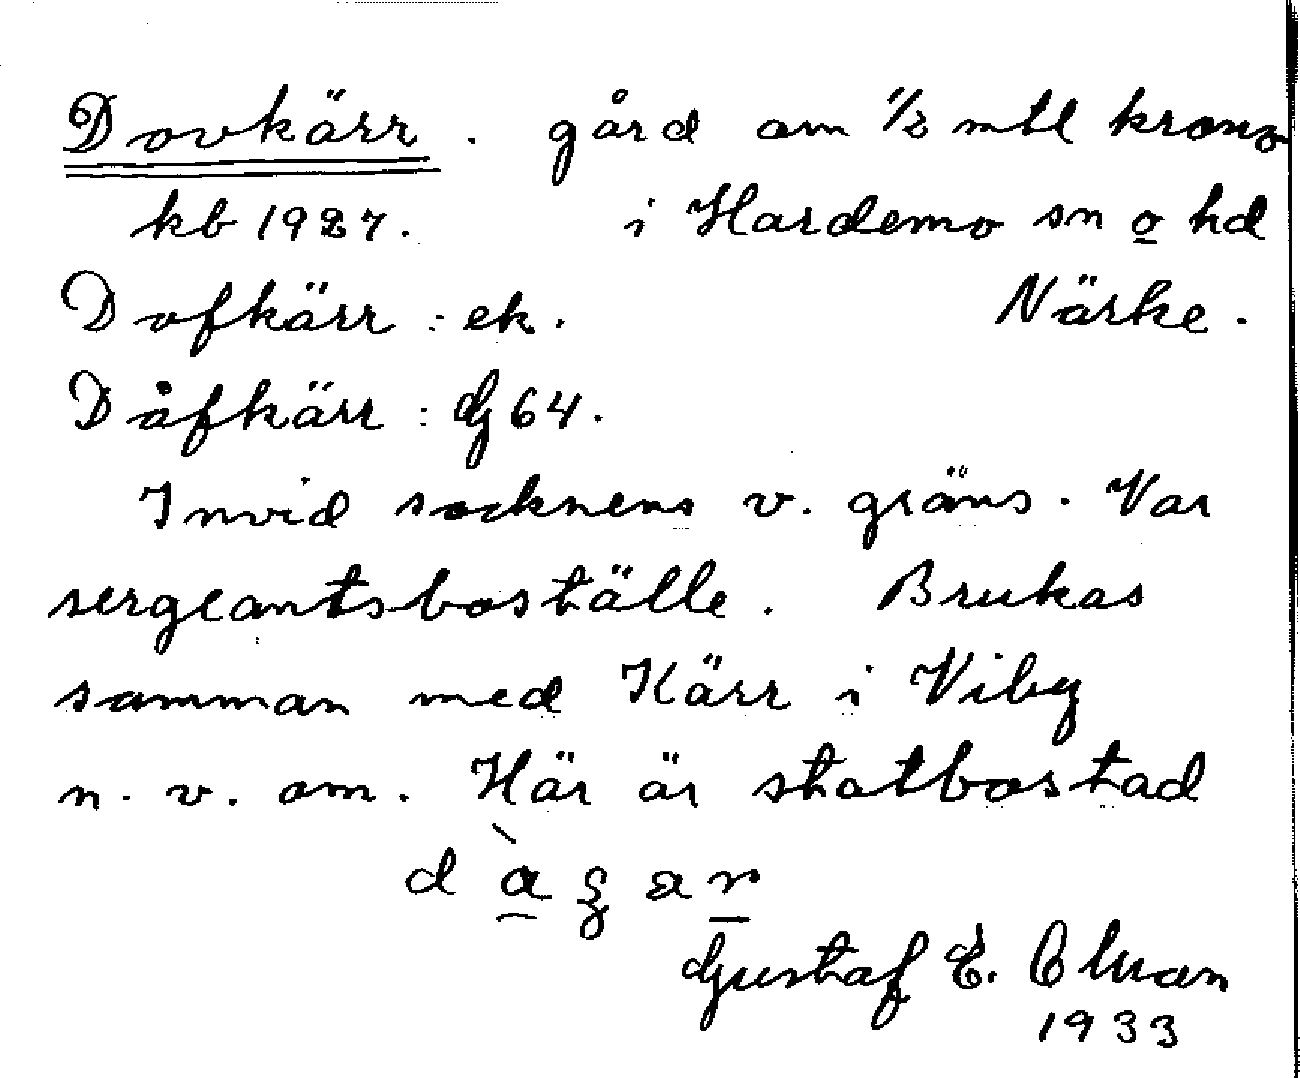 Dovkärr. gård om 1/2 mtl krono
kb 1927. i Hardemo sn o hd
Dofkärr: ek. Närke.
Dåfkärr: G 64.
Invid socknens v. gräns. Var
sergeantsboställe. Brukas
samman med Kärr i Viby
n. v. om. Här är statbostad
Gustaf E.
1933